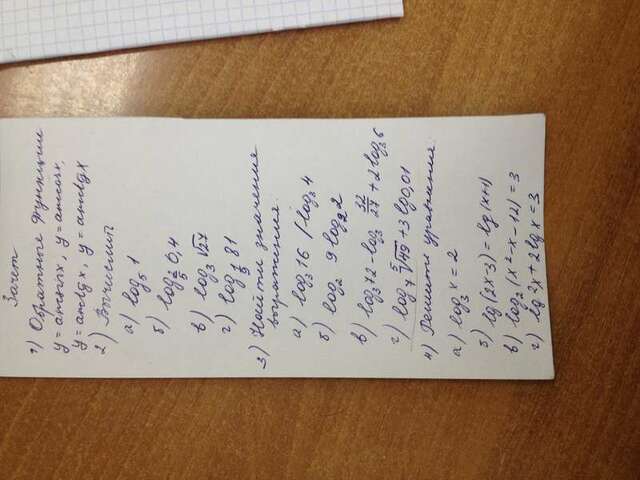 Зачет
1) Обратные функции
y = arcsin x, y = arccos x,
y = arctg x, y = arcctg x
2) Вычислить
а) log₅ 1
б) log_{2/5} 0,4
в) log₃ √27
г) log_{1/9} 81
3) Найти значения
выражения.
а) log₃ 16 / log₃ 4
б) log₂ 9 log₉ 2
в) log₃ 72 - log₃ 32/27 + 2 log₃ 6
г) log₇ ⁵√49 + 3 lg 0,01
4) Решите уравнения.
а) log₃ x = 2
б) lg (2x-3) = lg (x+1)
в) log₂ (x² - x - 12) = 3
г) lg² x + 2 lg x = 3